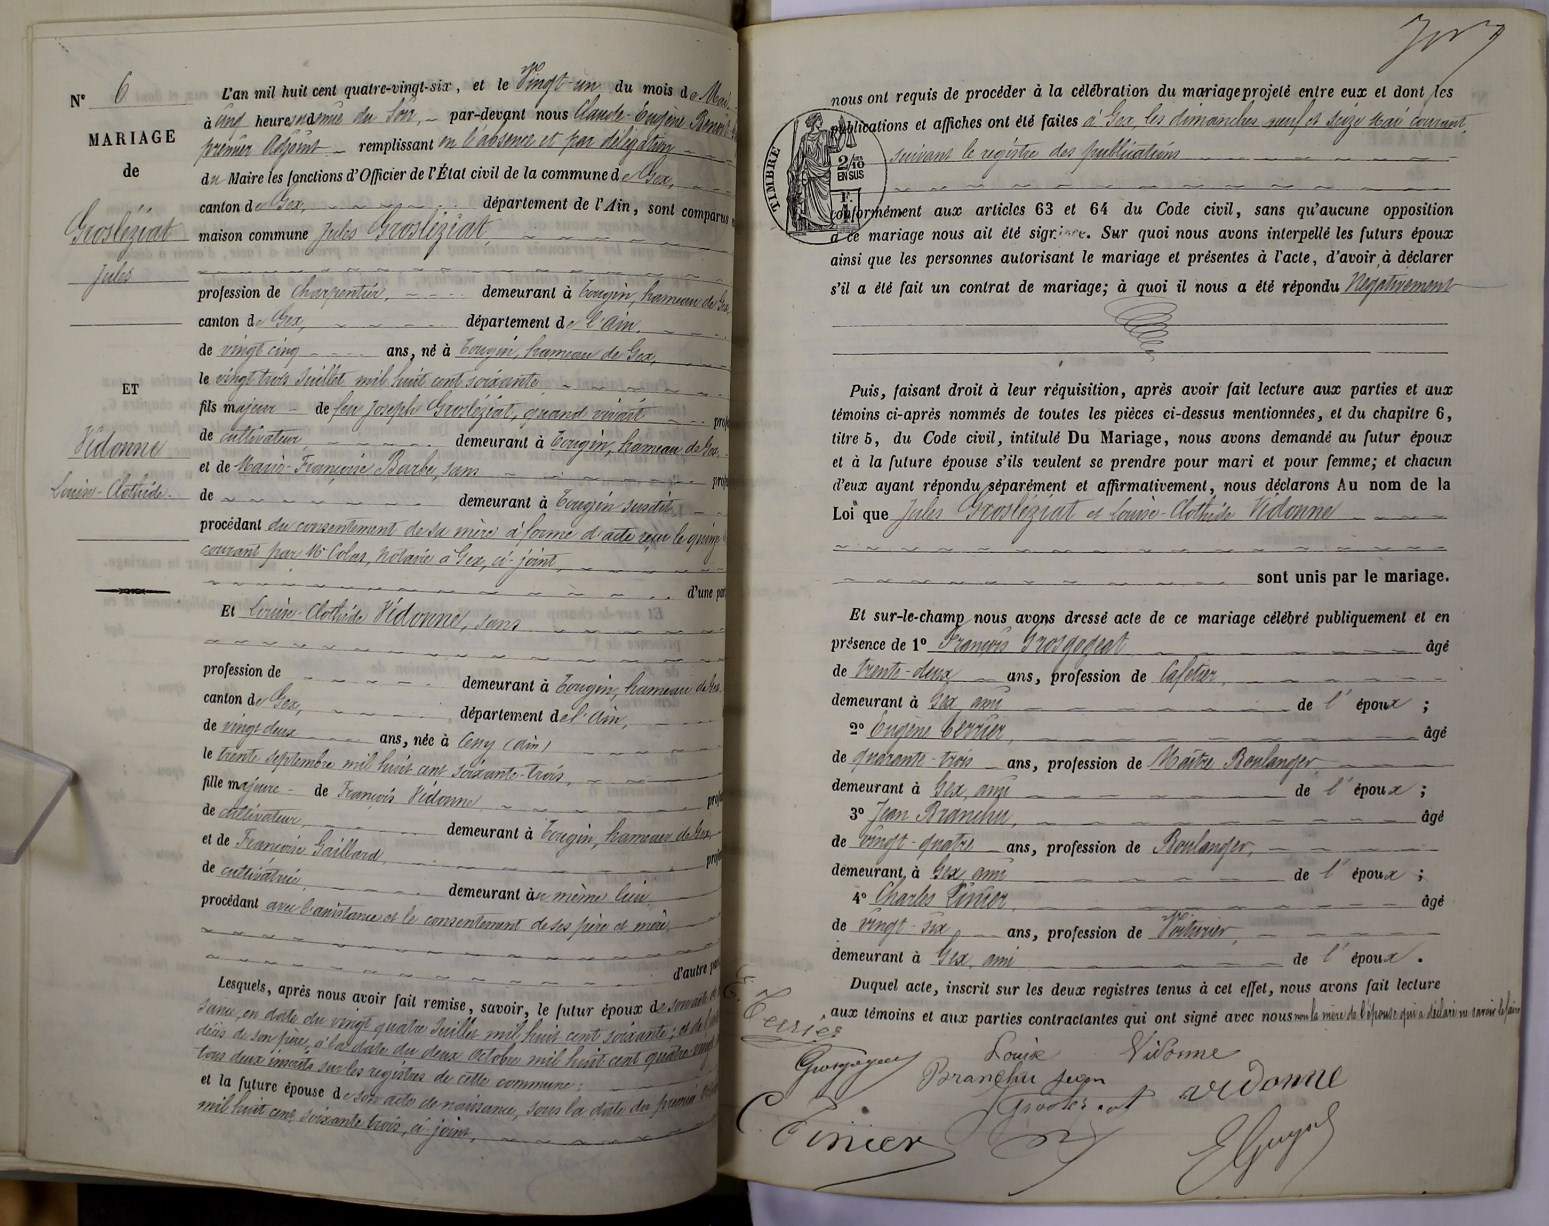 N° 6
MARIAGE
de
Grosléziat
Jules
ET
Vidonne
Louise-Clothide
L'an mil huit cent quatre-vingt-six, et le Vingt-un du mois de Mai
à cinq heures et demie du Soir, par-devant nous Claude-Eugène
premier Adjoint remplissant en l'absence et par délégation
du Maire les fonctions d'Officier de l'État civil de la commune de Gex,
canton de Gex, département de l'Ain, sont comparus
maison commune Jules Grosléziat,
profession de Charpentier, demeurant à Tougin, hameau de Gex,
canton de Gex, département de l'Ain,
de vingt cinq ans, né à Tougin, hameau de Gex,
le vingt trois Juillet mil huit cent soixante
fils majeur de feu Joseph Grosléziat, quand vivait
de cultivateur, demeurant à Tougin, hameau de Gex,
et de Marie-Françoise Barbe, sans
de demeurant à Tougin susdit,
procédant du consentement de sa mère à forme d'acte reçu le quinze
courant par Me Colas, Notaire à Gex, ci-joint,
d'une part
Et Louise-Clothide Vidonne, sans
profession de demeurant à Tougin, hameau de Gex,
canton de Gex, département de l'Ain,
de vingt deux ans, née à Cessy (Ain)
le trente septembre mil huit cent soixante-trois,
fille majeure de François Vidonne
de cultivateur, demeurant à Tougin, hameau de Gex,
et de Françoise Gaillard,
de cultivatrice, demeurant au même lieu
procédant avec l'assistance et le consentement de ses père et mère
d'autre part
Lesquels, après nous avoir fait remise, savoir, le futur époux de son acte de
sance, en date du vingt quatre Juillet mil huit cent soixante; et de
décès de son père, à la date du deux Octobre mil huit cent quatre vingt
tous deux inscrits sur les registres de cette commune;
et la future épouse de son acte de naissance, sous la date du premier
mil huit cent soixante trois, ci-joint,
nous ont requis de procéder à la célébration du mariage projeté entre eux et dont les
publications et affiches ont été faites à Gex, les dimanches neuf et seize mai courant,
suivant le registre des publications
TIMBRE
2/10
EN SUS
conformément aux articles 63 et 64 du Code civil, sans qu'aucune opposition
à ce mariage nous ait été signifiée. Sur quoi nous avons interpellé les futurs époux
ainsi que les personnes autorisant le mariage et présentes à l'acte, d'avoir à déclarer
s'il a été fait un contrat de mariage; à quoi il nous a été répondu Négativement
Puis, faisant droit à leur réquisition, après avoir fait lecture aux parties et aux
témoins ci-après nommés de toutes les pièces ci-dessus mentionnées, et du chapitre 6,
titre 5, du Code civil, intitulé Du Mariage, nous avons demandé au futur époux
et à la future épouse s'ils veulent se prendre pour mari et pour femme; et chacun
d'eux ayant répondu séparément et affirmativement, nous déclarons Au nom de la
Loi que Jules Grosléziat et Louise-Clothide Vidonne
sont unis par le mariage.
Et sur-le-champ nous avons dressé acte de ce mariage célébré publiquement et en
présence de 1° François Grosgogeat âgé
de trente-deux ans, profession de Cafetier,
demeurant à Gex, ami de l'époux ;
2° Eugène Terrier, âgé
de quarante-trois ans, profession de Maître Boulanger
demeurant à Gex, ami de l'époux ;
3° Jean Branchu, âgé
de vingt-quatre ans, profession de Boulanger,
demeurant à Gex, ami de l'époux ;
4° Charles Finier, âgé
de vingt-six ans, profession de Voiturier,
demeurant à Gex, ami de l'époux.
Duquel acte, inscrit sur les deux registres tenus à cet effet, nous avons fait lecture
aux témoins et aux parties contractantes qui ont signé avec nous non la mère de l'épouse qui a déclaré ne savoir le faire
E. Terrier
Louise Vidonne
Branchu Jean
vidonne
C. Finier